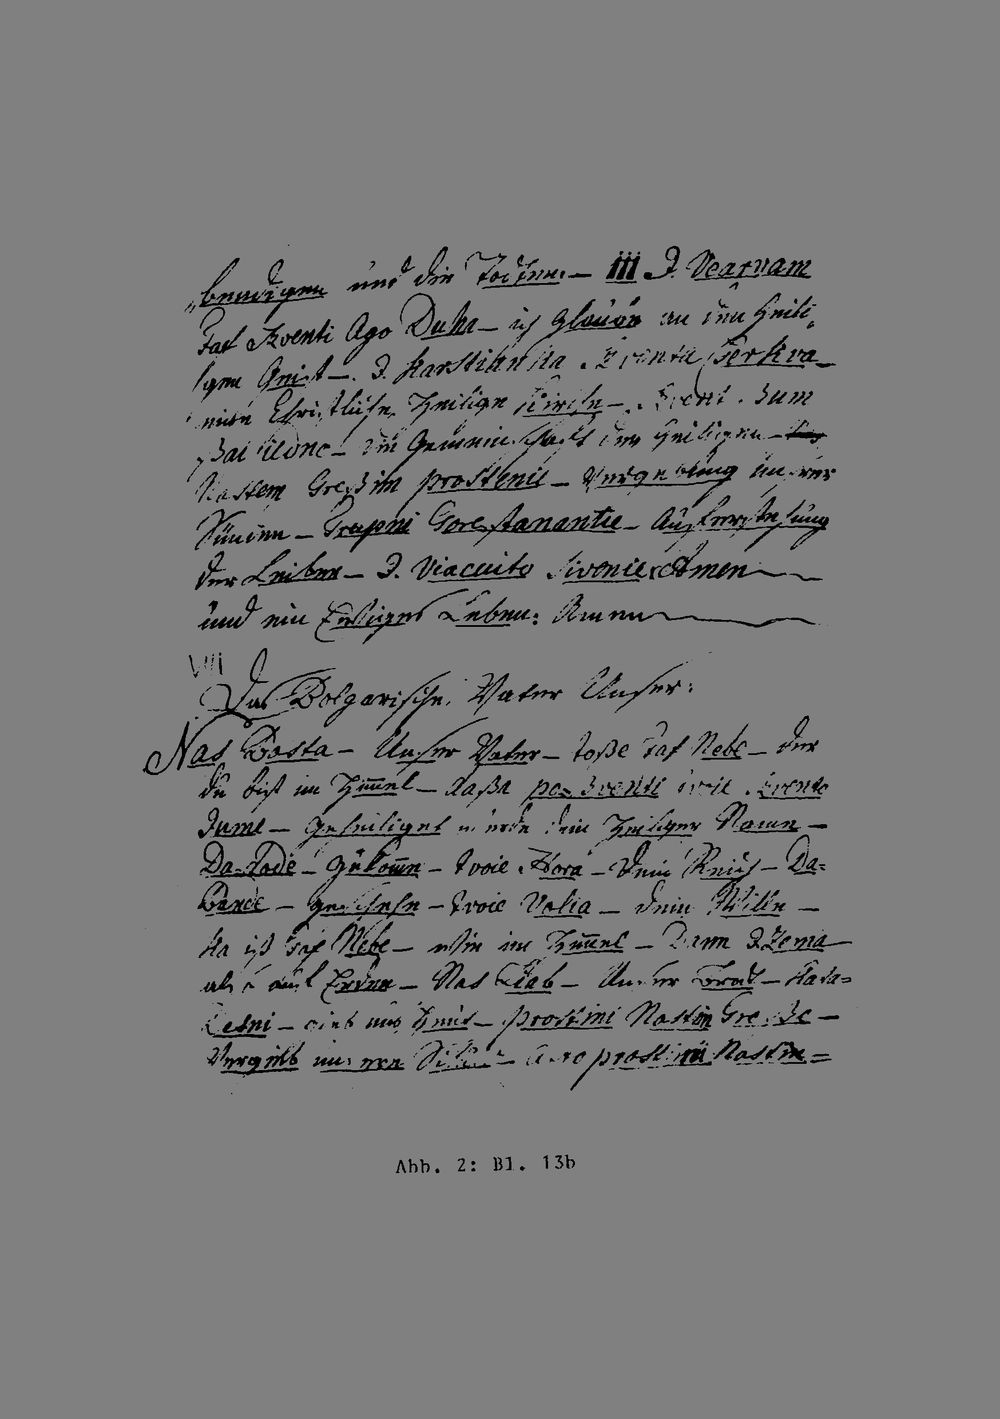 bendigen und die Todten. — III J. Vearvam
Faf Sventi Ago Duha — ich glaube an den Heili-
gen Geist —. J. Karstianska Sventa Cerkva —
eine Christliche Heilige Kirche — Sveni. Zum
— die Gemeinschaft der Heiligen —
Nastem Greßim prostenie — Vergebung unsrer
Sünden — Gorestanantie — Auferstehung
der Leiber — J. Viacuito Sivonie Amen —
und ein Ewiges Leben: Amen —
VIII
Das Bolgarische Vater Unser:
Nas Basta — Unser Vater — toße Faf Nebe — der
du bist im Himmel — daßa po-Sventi tvoie Svento
Jume — geheiliget werde dein Heiliger Name —
Da-dode — zukomme — tvoie Hora — dein Reich — Da-
Bande — geschehe — tvoie Volia — dein Wille —
Ka iß Faf Nebe — wie im Himmel — Dann J Zemia
also auf Erden — Nas Liab — Unser Brod — Kada-
Desni — gieb uns Heut — prostini Nastim Greße —
Vergieb unseren — prostinü Nastem =
Abb. 2: Bl. 13b